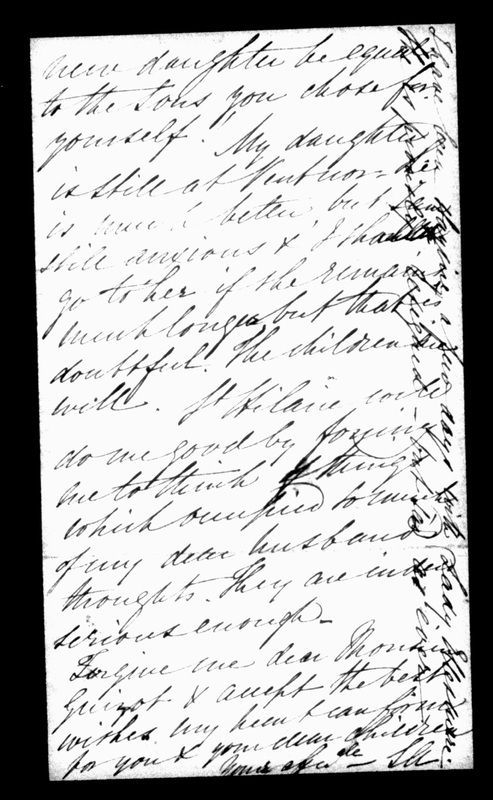 new daughter be equal
to the sons you chose for
yourself. My daughter
is still at Ventnor - she
is much better, but I am
still anxious & I shall
go to her if she remains
much longer but that is
doubtful. The children are
well. St Hilaire will
do me good by forcing
me to think of things
which occupied so much
of my dear husband's
thoughts. They are indeed
serious enough -
Forgive me dear Monsieur
Guizot & accept the best
wishes my heart can form
for you & your dear children
Yours affec
I have been staying a few days with Lady